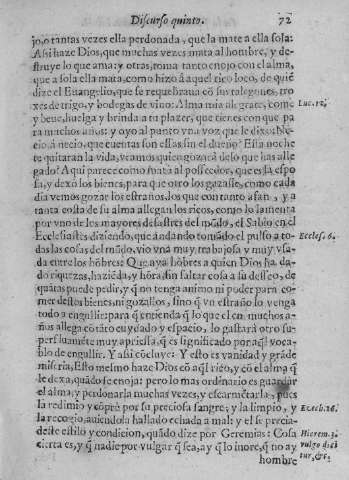 Discurso quinto. 72
jo, o tantas vezes ella perdonada, que la mate a ella sola:
Assi haze Dios, que muchas vezes mata al hombre, y de-
struye lo que ama: y otras, toma tanto enojo con el alma,
que a sola ella mata, como hizo á aquel rico loco, de quiē
dize el Euangelio, que se requebraua cō sus talegones, tro
xes de trigo, y bodegas de vino: Alma mia alegrate, come
y beue, huelga y brinda a tu plazer, que tienes con que pa
ra muchos años: y oyo al punto vna voz que le dixo: Ne-
cio, á necio, que cuentas son essas sin el dueño? Esta noche
te quitaran la vida, veamos quien gozará delo que has alle
gado? Aqui parece como mata al possedor, que es la espo
sa, y dexo los bienes, para que otro los gozasse, como cada
dia vemos gozar los estraños, los que con tanto afan, y a
tanta costa de su alma allegan los ricos, como lo lamenta
por vno de los mayores desastres del mūdo, el Sabio en el
Ecclesiastes diziendo, que ādando tomādo el pulso a to-
das las cosas del mūdo, vio vna muy trabajosa y muy vsa-
da entre los hōbres: Que aya hōbres a quien Dios ha da-
do riquezas, haziēda, y hōra, sin faltar cosa a su desseo, de
quātas puede pedir, y q̄ no tenga animo ni poder para co-
mer destos bienes, ni gozallos, sino q̄ vn estraño lo venga
todo a engullir: para q̄ entienda q̄ lo que el en muchos a-
ños allega cō tāto cuydado y espacio, lo gastará otro su-
perfluamēte muy apriessa, q̄ es significado por aq̄l voca-
blo de engullir. Y assi cōcluye: Y esto es vanidad y gráde
miseria, Esto mesmo haze Dios cō aq̄l rico, y cō el alma q̄
le dexa, quādo se enoja: pero lo mas ordinario es guardar
el alma, y perdonarla muchas vezes, y escarmētarla, pues
la redimio y cōprò por su preciosa sangre, y la limpio, y
la recogio, auiendola hallado echada a mal: y el se precia-
deste estilo y condicion, quādo dize por Geremias: Cosa
cierta es, y q̄ nadie por vulgar q̄ sea, ay q̄ lo inore, q̄ no ay
hombre
Luc. 12.
Eccles. 6.
Ezech. 16.
Hierem. 3.
vulgo dici
tur, &c.